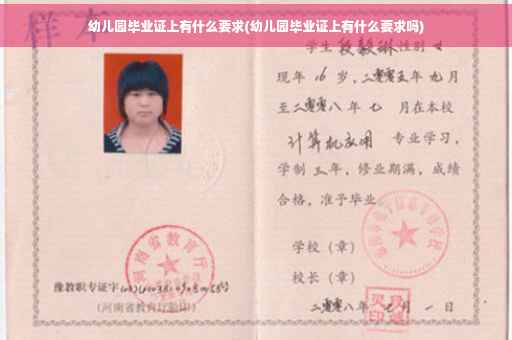 幼儿园毕业证上有什么要求(幼儿园毕业证上有什么要求吗)
样本
学生段毅琳性别女
现年16岁,二零零五年九月
至二零零八年七月在本校
计算机应用 专业学习,
学制三年,修业期满,成绩
合格,准予毕业
学校(章)
校长(章)
二零零八年七月一日
河南省教育厅
豫教职专证字
(河南省教育厅验印)